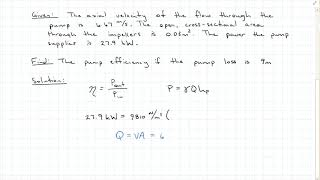 Given: The axial velocity of the flow through the
pump is 6.67 m/s. The open, cross-sectional area
through the impellers is 0.06m². The power the pump
supplier is 27.9 kW.
Find: The pump efficiency if the pump loss is 9m
Solution:
η = Pout / Pin P = γQhp
27.9 kW = 9810 N/m³ (
Q = VA = 6